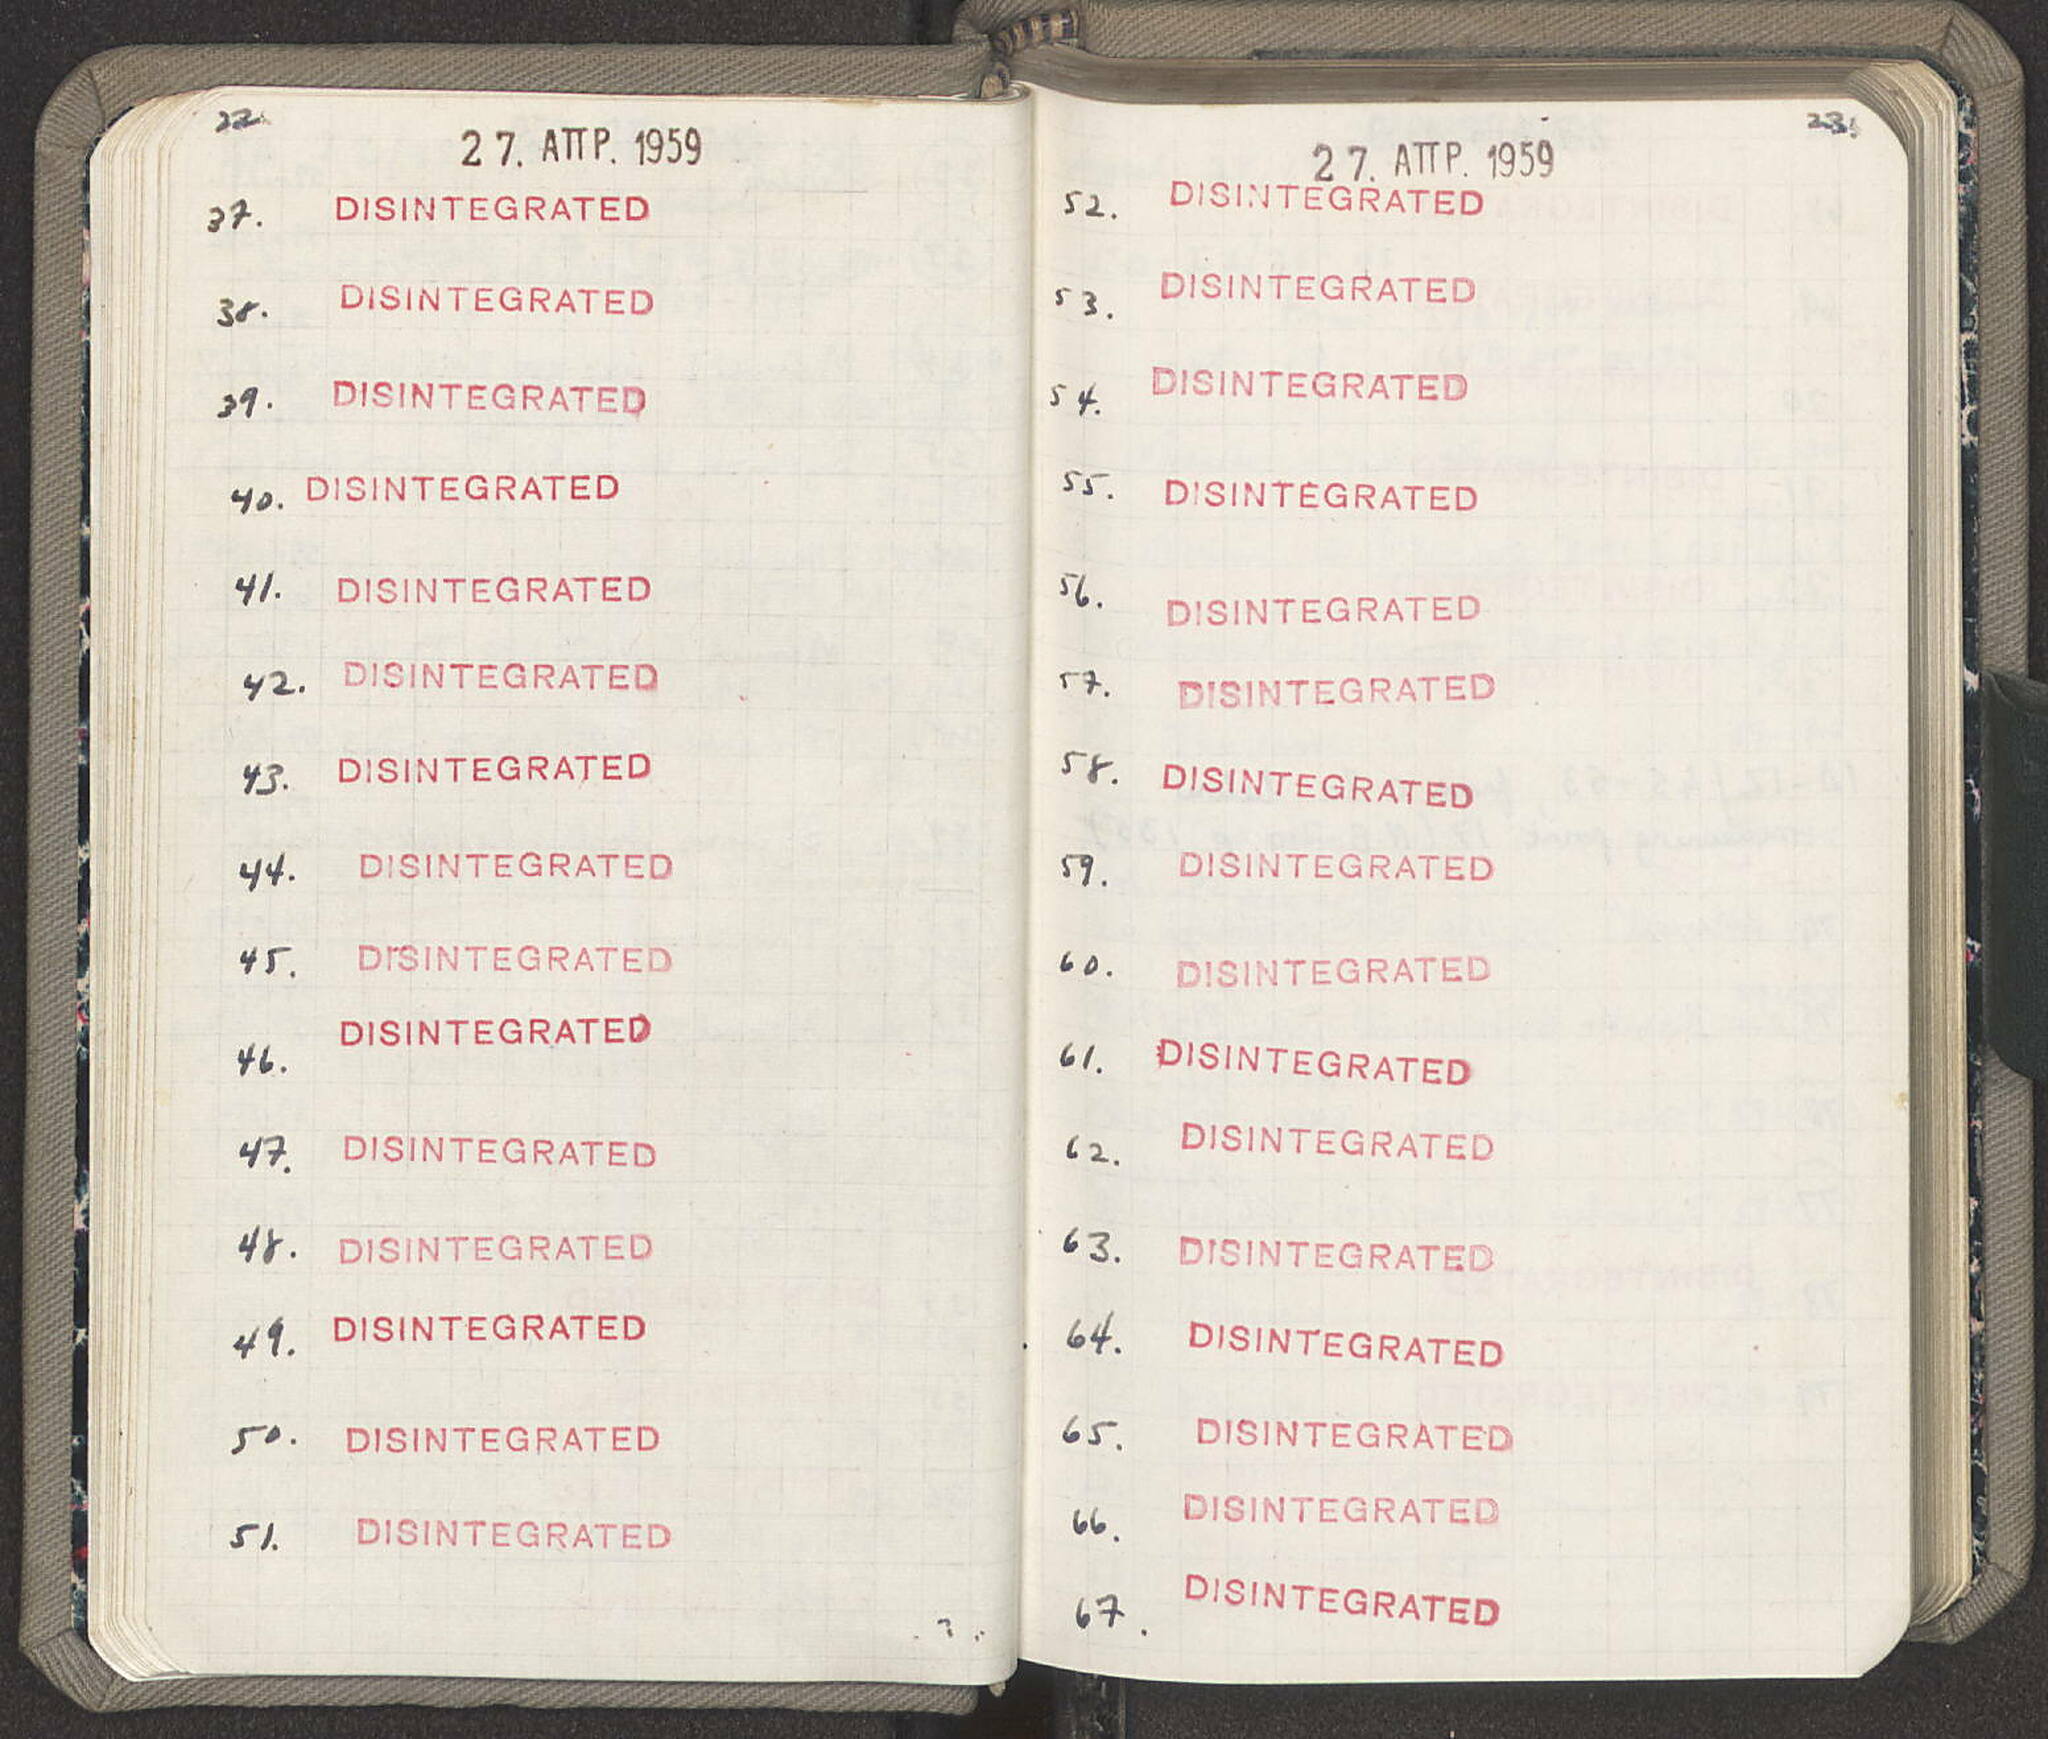 22.
27. ΑΠΡ. 1959
37. DISINTEGRATED
38. DISINTEGRATED
39. DISINTEGRATED
40. DISINTEGRATED
41. DISINTEGRATED
42. DISINTEGRATED
43. DISINTEGRATED
44. DISINTEGRATED
45. DISINTEGRATED
46. DISINTEGRATED
47. DISINTEGRATED
48. DISINTEGRATED
49. DISINTEGRATED
50. DISINTEGRATED
51. DISINTEGRATED
23.
27. ΑΠΡ. 1959
52. DISINTEGRATED
53. DISINTEGRATED
54. DISINTEGRATED
55. DISINTEGRATED
56. DISINTEGRATED
57. DISINTEGRATED
58. DISINTEGRATED
59. DISINTEGRATED
60. DISINTEGRATED
61. DISINTEGRATED
62. DISINTEGRATED
63. DISINTEGRATED
64. DISINTEGRATED
65. DISINTEGRATED
66. DISINTEGRATED
67. DISINTEGRATED